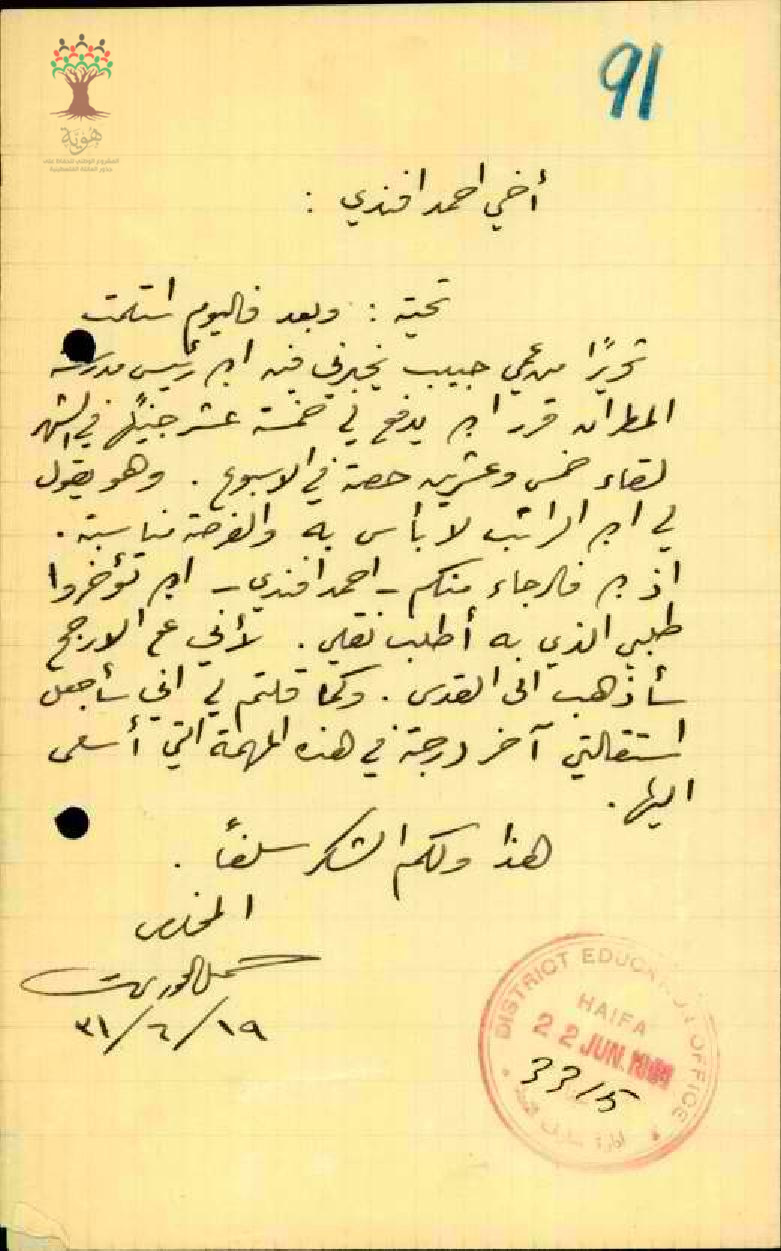 91
هُويَّة
المشروع الوطني للحفاظ على
جذور العائلة الفلسطينية
أخي احمد افندي :
تحية : وبعد فاليوم استلمت
تحريرًا من عمي حبيب يخبرني فيه ان رئيس مدرسة
المطران قرر ان يدفع لي خمسة عشر جنيهًا في الشهر
لقاء خمس وعشرين حصة في الاسبوع . وهو يقول
لي ان الراتب لا بأس به والفرصة مناسبة .
اذن فالرجاء منكم - احمد افندي - ان تؤخروا
طلبي الذي به أطلب نقلي . لأني على الارجح
سأذهب الى القدس . وكما قلتم لي اني سأجعل
استقالتي آخر درجة في هذه المهمة التي أسعى
اليها .
هذا ولكم الشكر سلفاً .
المخلص
١٩/٦/٣١
DISTRICT EDUCATION OFFICE
HAIFA
22 JUN. 1931
33/5